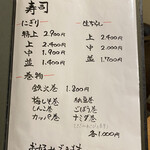 寿司
にぎり
特上 2.900円
上 2.400円
中 1.700円
並 1.400円
生ちらし
上 2.400円
中 2.000円
並 1.700円
巻物
鉄火巻 1.800円
梅しそ巻
しんこ巻
カッパ巻
納豆巻
ごぼう巻
ナミダ巻
各1.000円